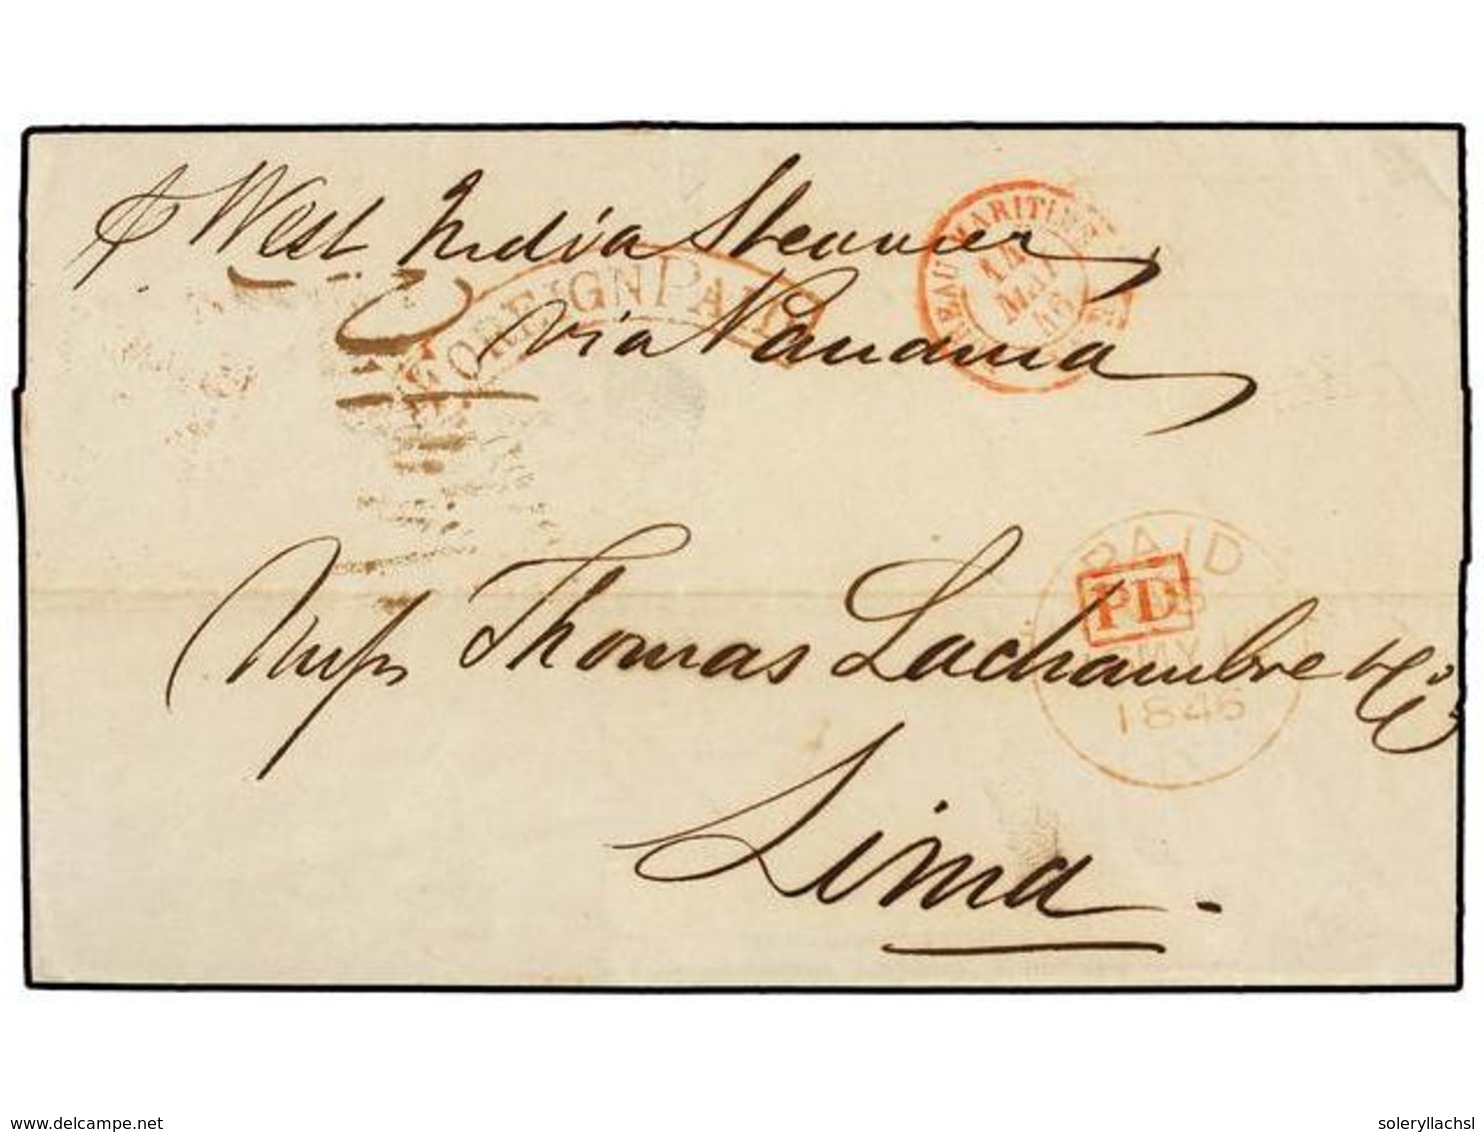 p West India Steamer
FOREIGN PAID
via Panama
BUREAU MARITIME
14
MAI
46
PAID
PD
MY
1846
Messrs Thomas Lachambre & Co
Lima.
delcampe.net
soleryllachsl